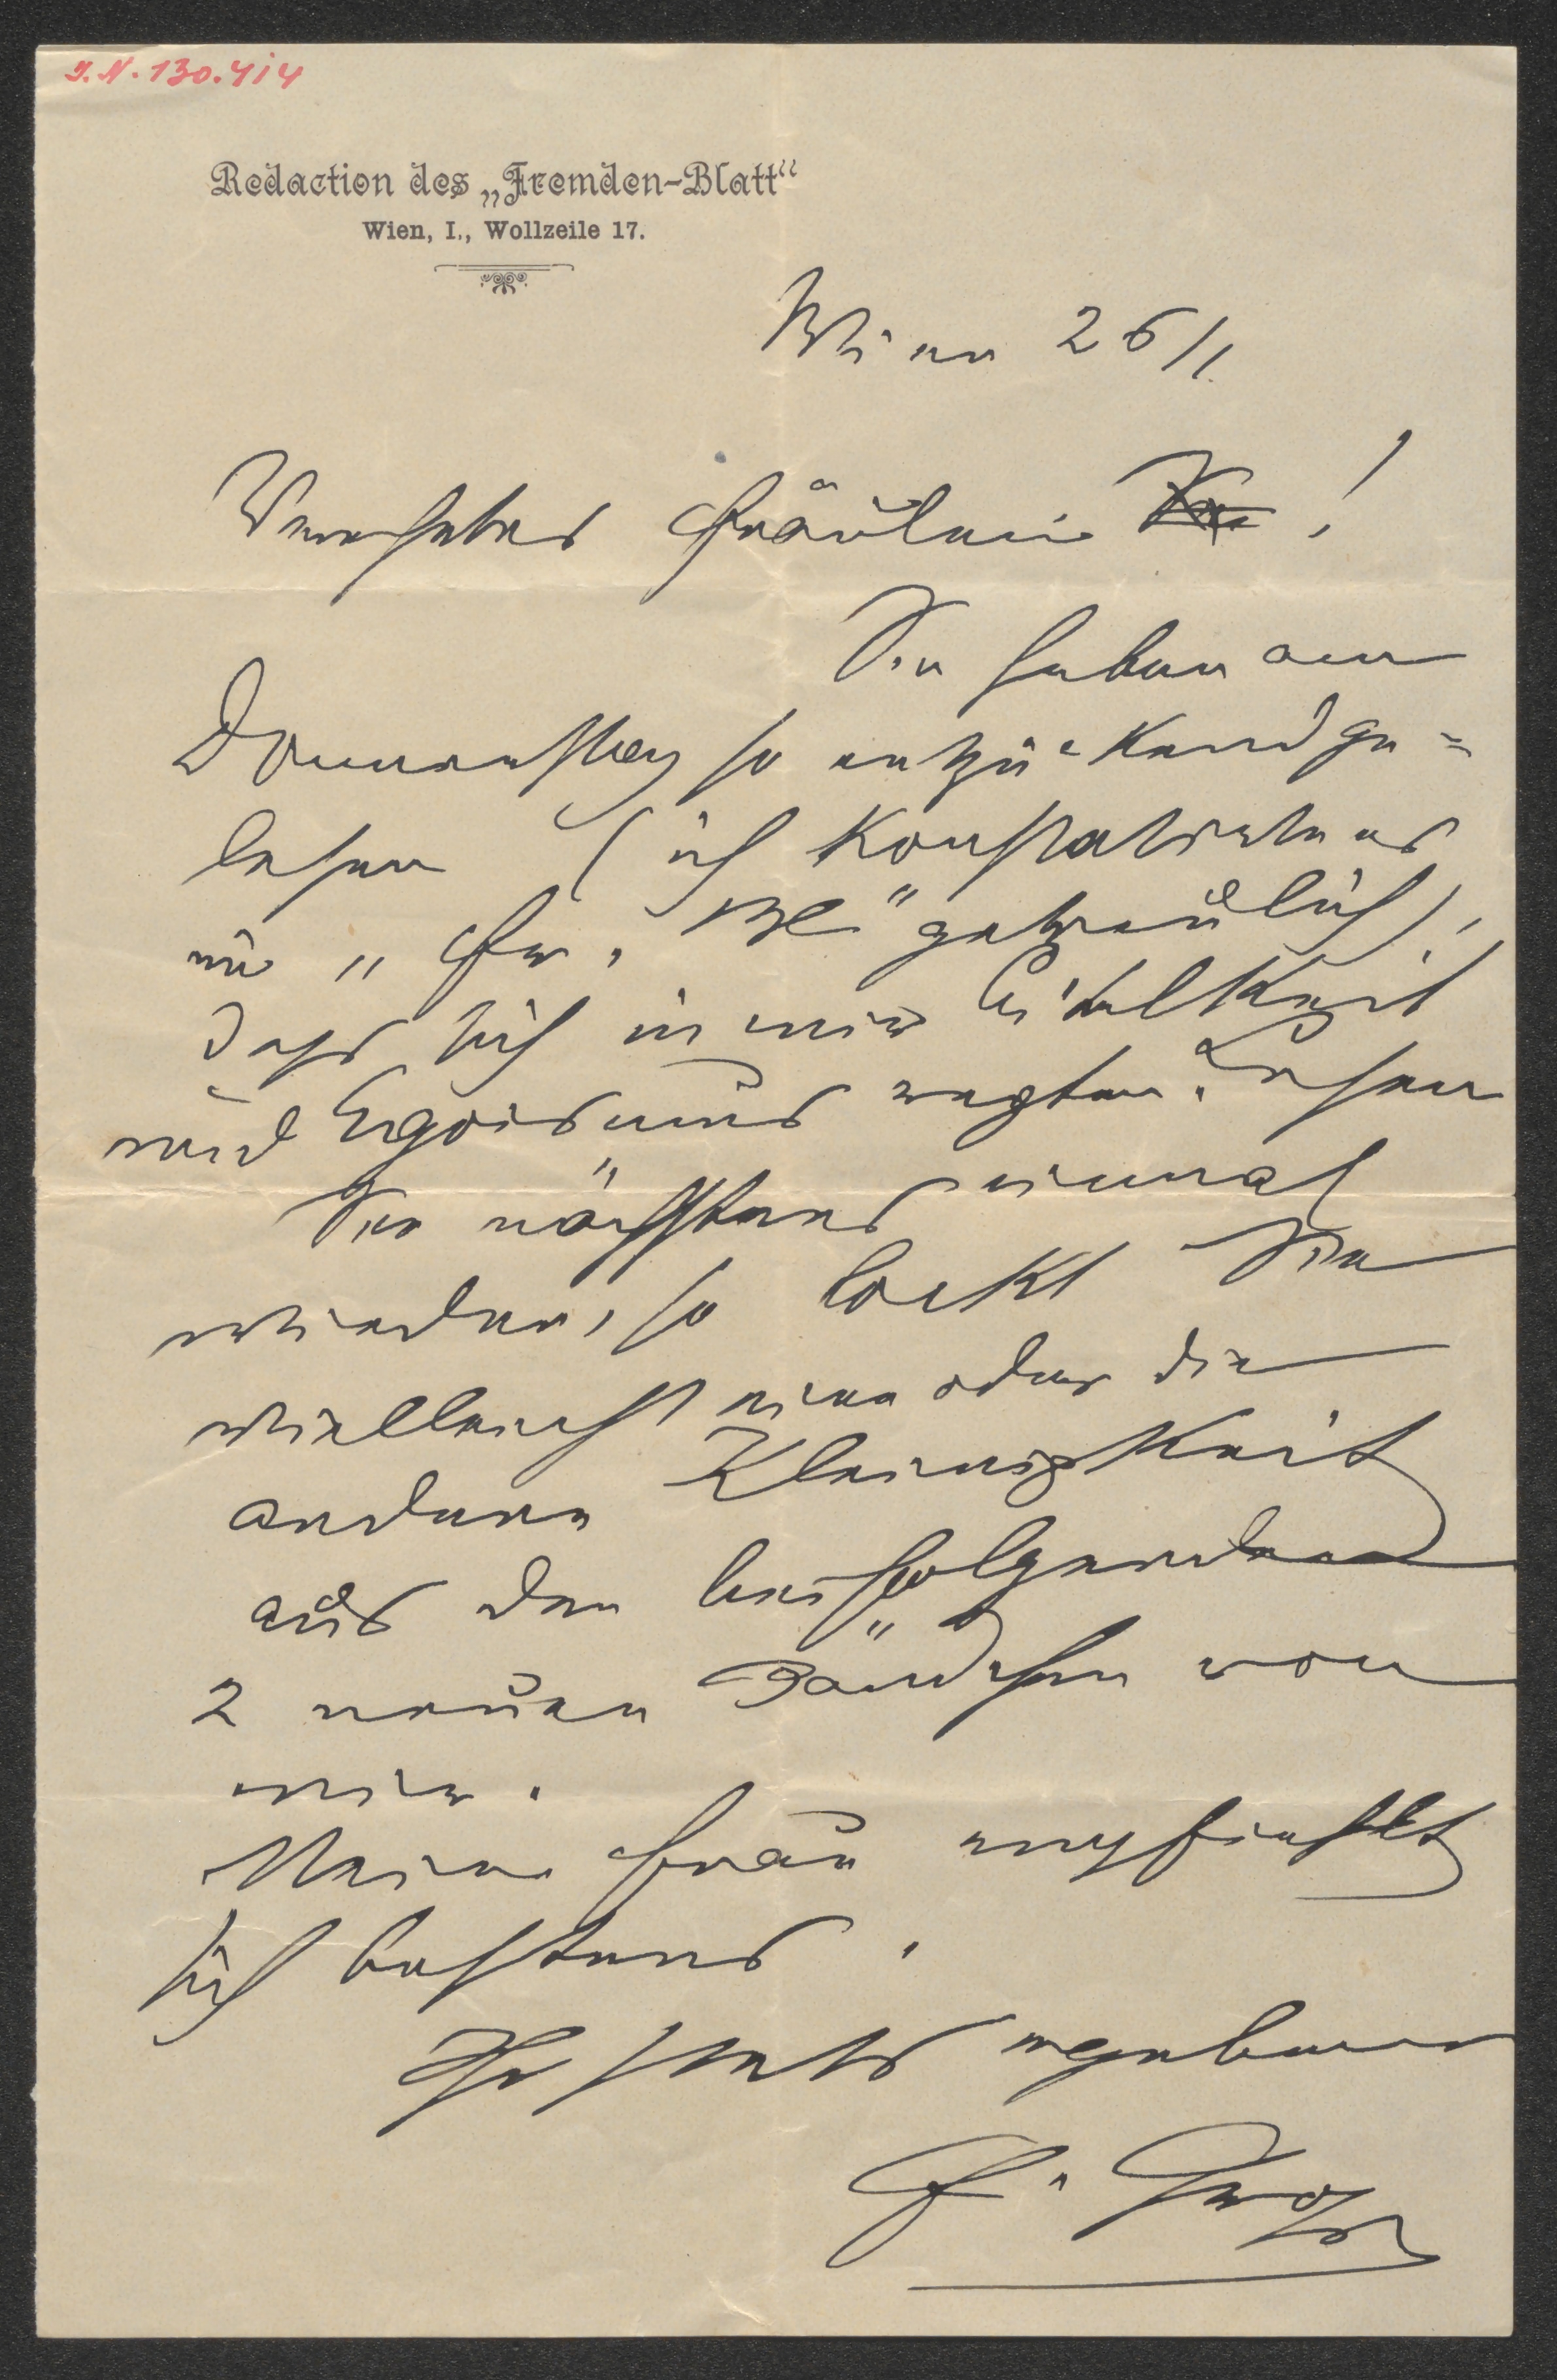 I.N. 130.414
Redaction des „Fremden-Blatt“
Wien, I., Wollzeile 17.
Wien 26/1.
Verehrtes Fräulein !
Sie haben am
Donnerstag so entzückend ge=
lesen (ich konstatirte es
im „Fr. Bl“ getreulich),
daß sich in mir Eitelkeit
und Egoismus regten. Lesen
Sie nächstens einmal
wieder, so lockt Sie
vielleicht eine oder die
andere Kleinigkeit
aus den beifolgenden
2 neuen Bändchen von
mir.
Meine Frau empfiehlt
sich bestens.
Ihr stets ergebener
F. Groß